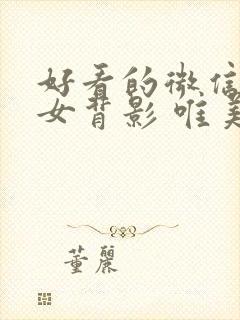 好看的微信
女背影 唯美
董丽